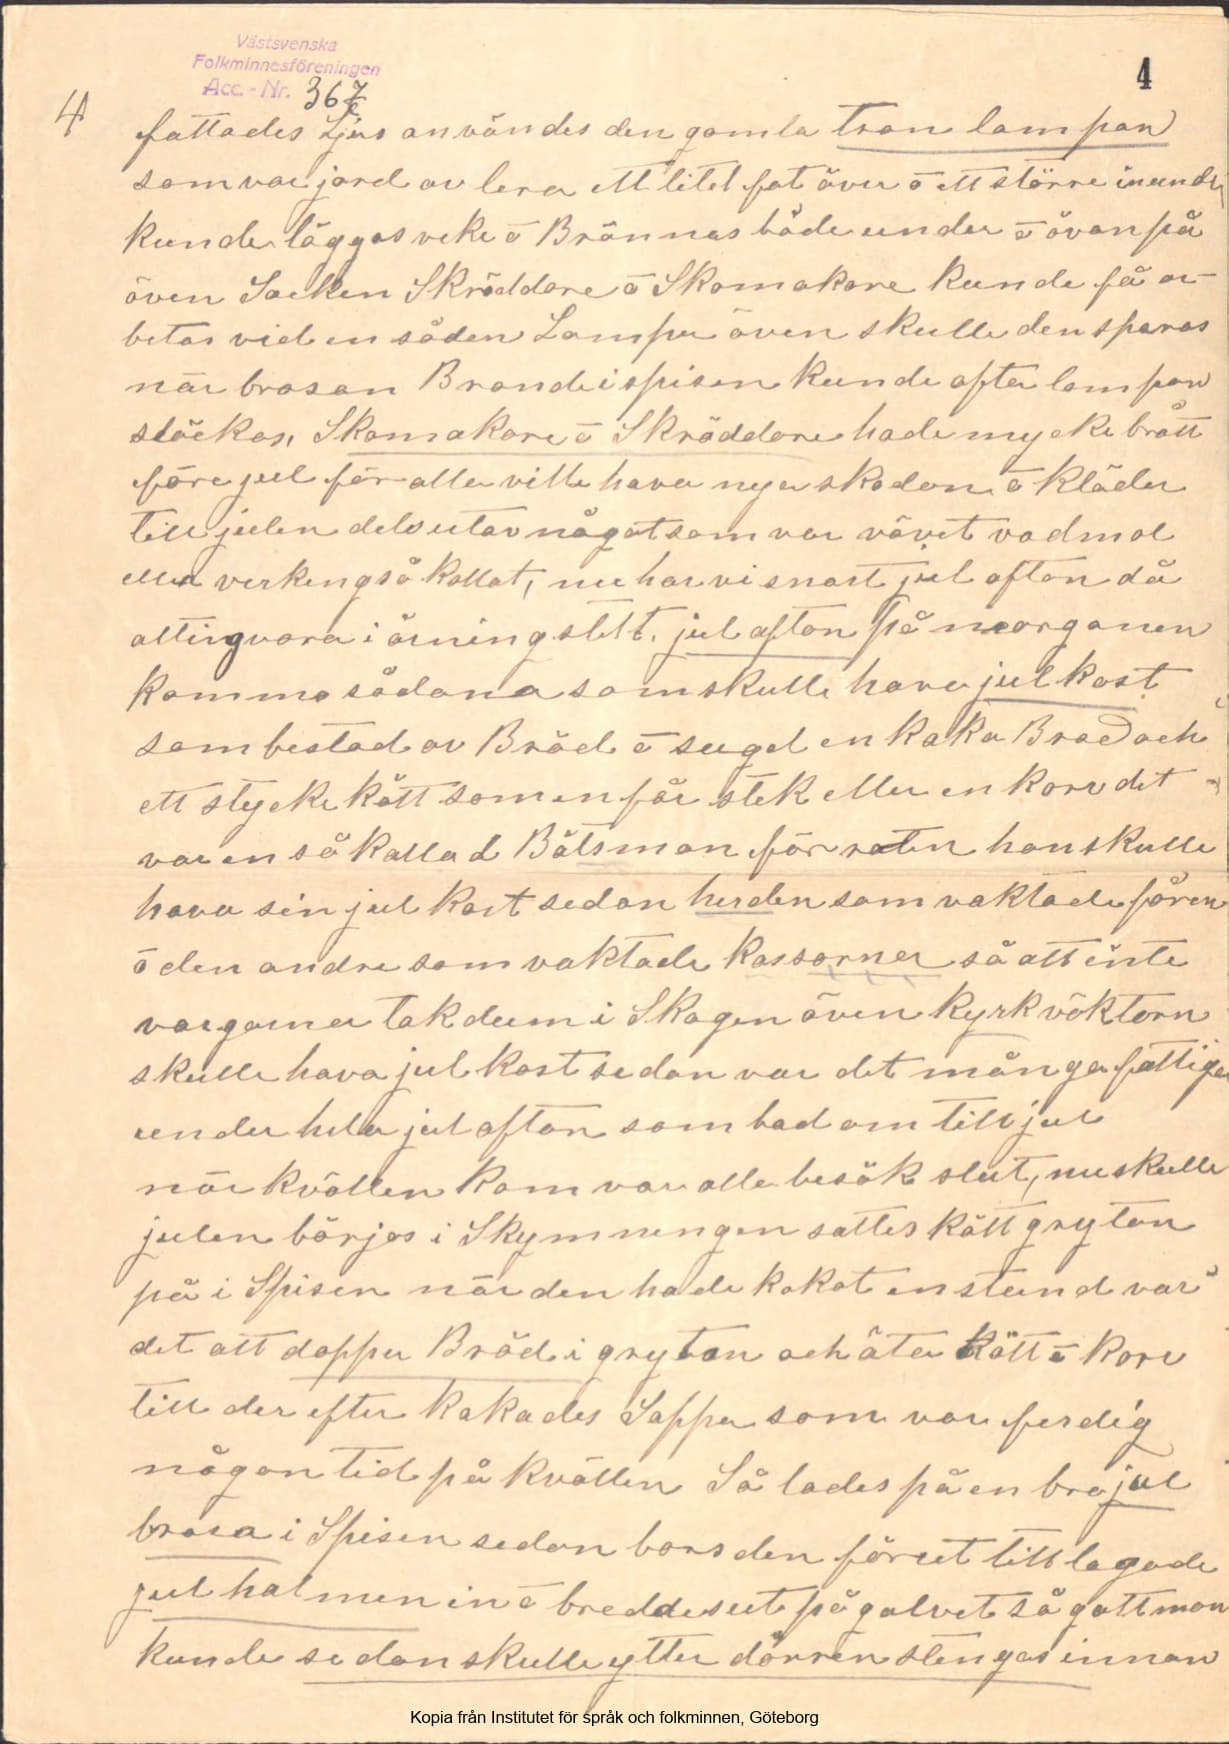 Västsvenska
Folkminnesföreningen
Acc. - Nr. 367
4
4
fattades Ljus användes den gamla tran lampan
som var jord av lera ett litet fat över ō ett större inunder
kunde läggas veke ō Brännas både under ō ovan på
även Socken Skräddare ō Skomakare kunde få ar-
betas vid en såden Lampa även skulle den sparas
när brasan Brande i spisen kunde ofta lampan
släckas, Skomakare ō Skräddare hade mycke brått
före jul för alla ville hava nya skodon ō kläder
till julen dels utav något som var vävet vadmal
eller verken så kallat, nu har vi snart jul afton då
alting vara i ärning stelt. jul afton på morganen
kommo sådana som skulle hava jul kost
som bestod av Bröd ō sugel en kaka Bröd och
ett stycke kött som en får stek eller en korv det
var en så kallad Båtsman för roten han skulle
hava sin jul kost sedan herden som vaktade fåren
ō den andre som vaktade kossorner så att inte
vargarner tak dum i Skogen även kyrkväktarn
skulle hava jul kost sedan var det många fattiga
under hela jul afton som bad om till jul
när kvällen kom var alla besök slut, nu skulle
julen börjas i Skymningen sattes kött grytan
på i Spisen när den hade kokat en stund var
det att doppa Bröd i grytan och äta kött ō korv
till der efter kokades Soppa som var ferdig
någon tid på kvällen Så lades på en bra jul
brasa i Spisen sedan bars den förut till lagade
jul halmen in ō breddes ut på golvet så gott man
kunde sedan skulle ytter dörren stengas innan
Kopia från Institutet för språk och folkminnen, Göteborg